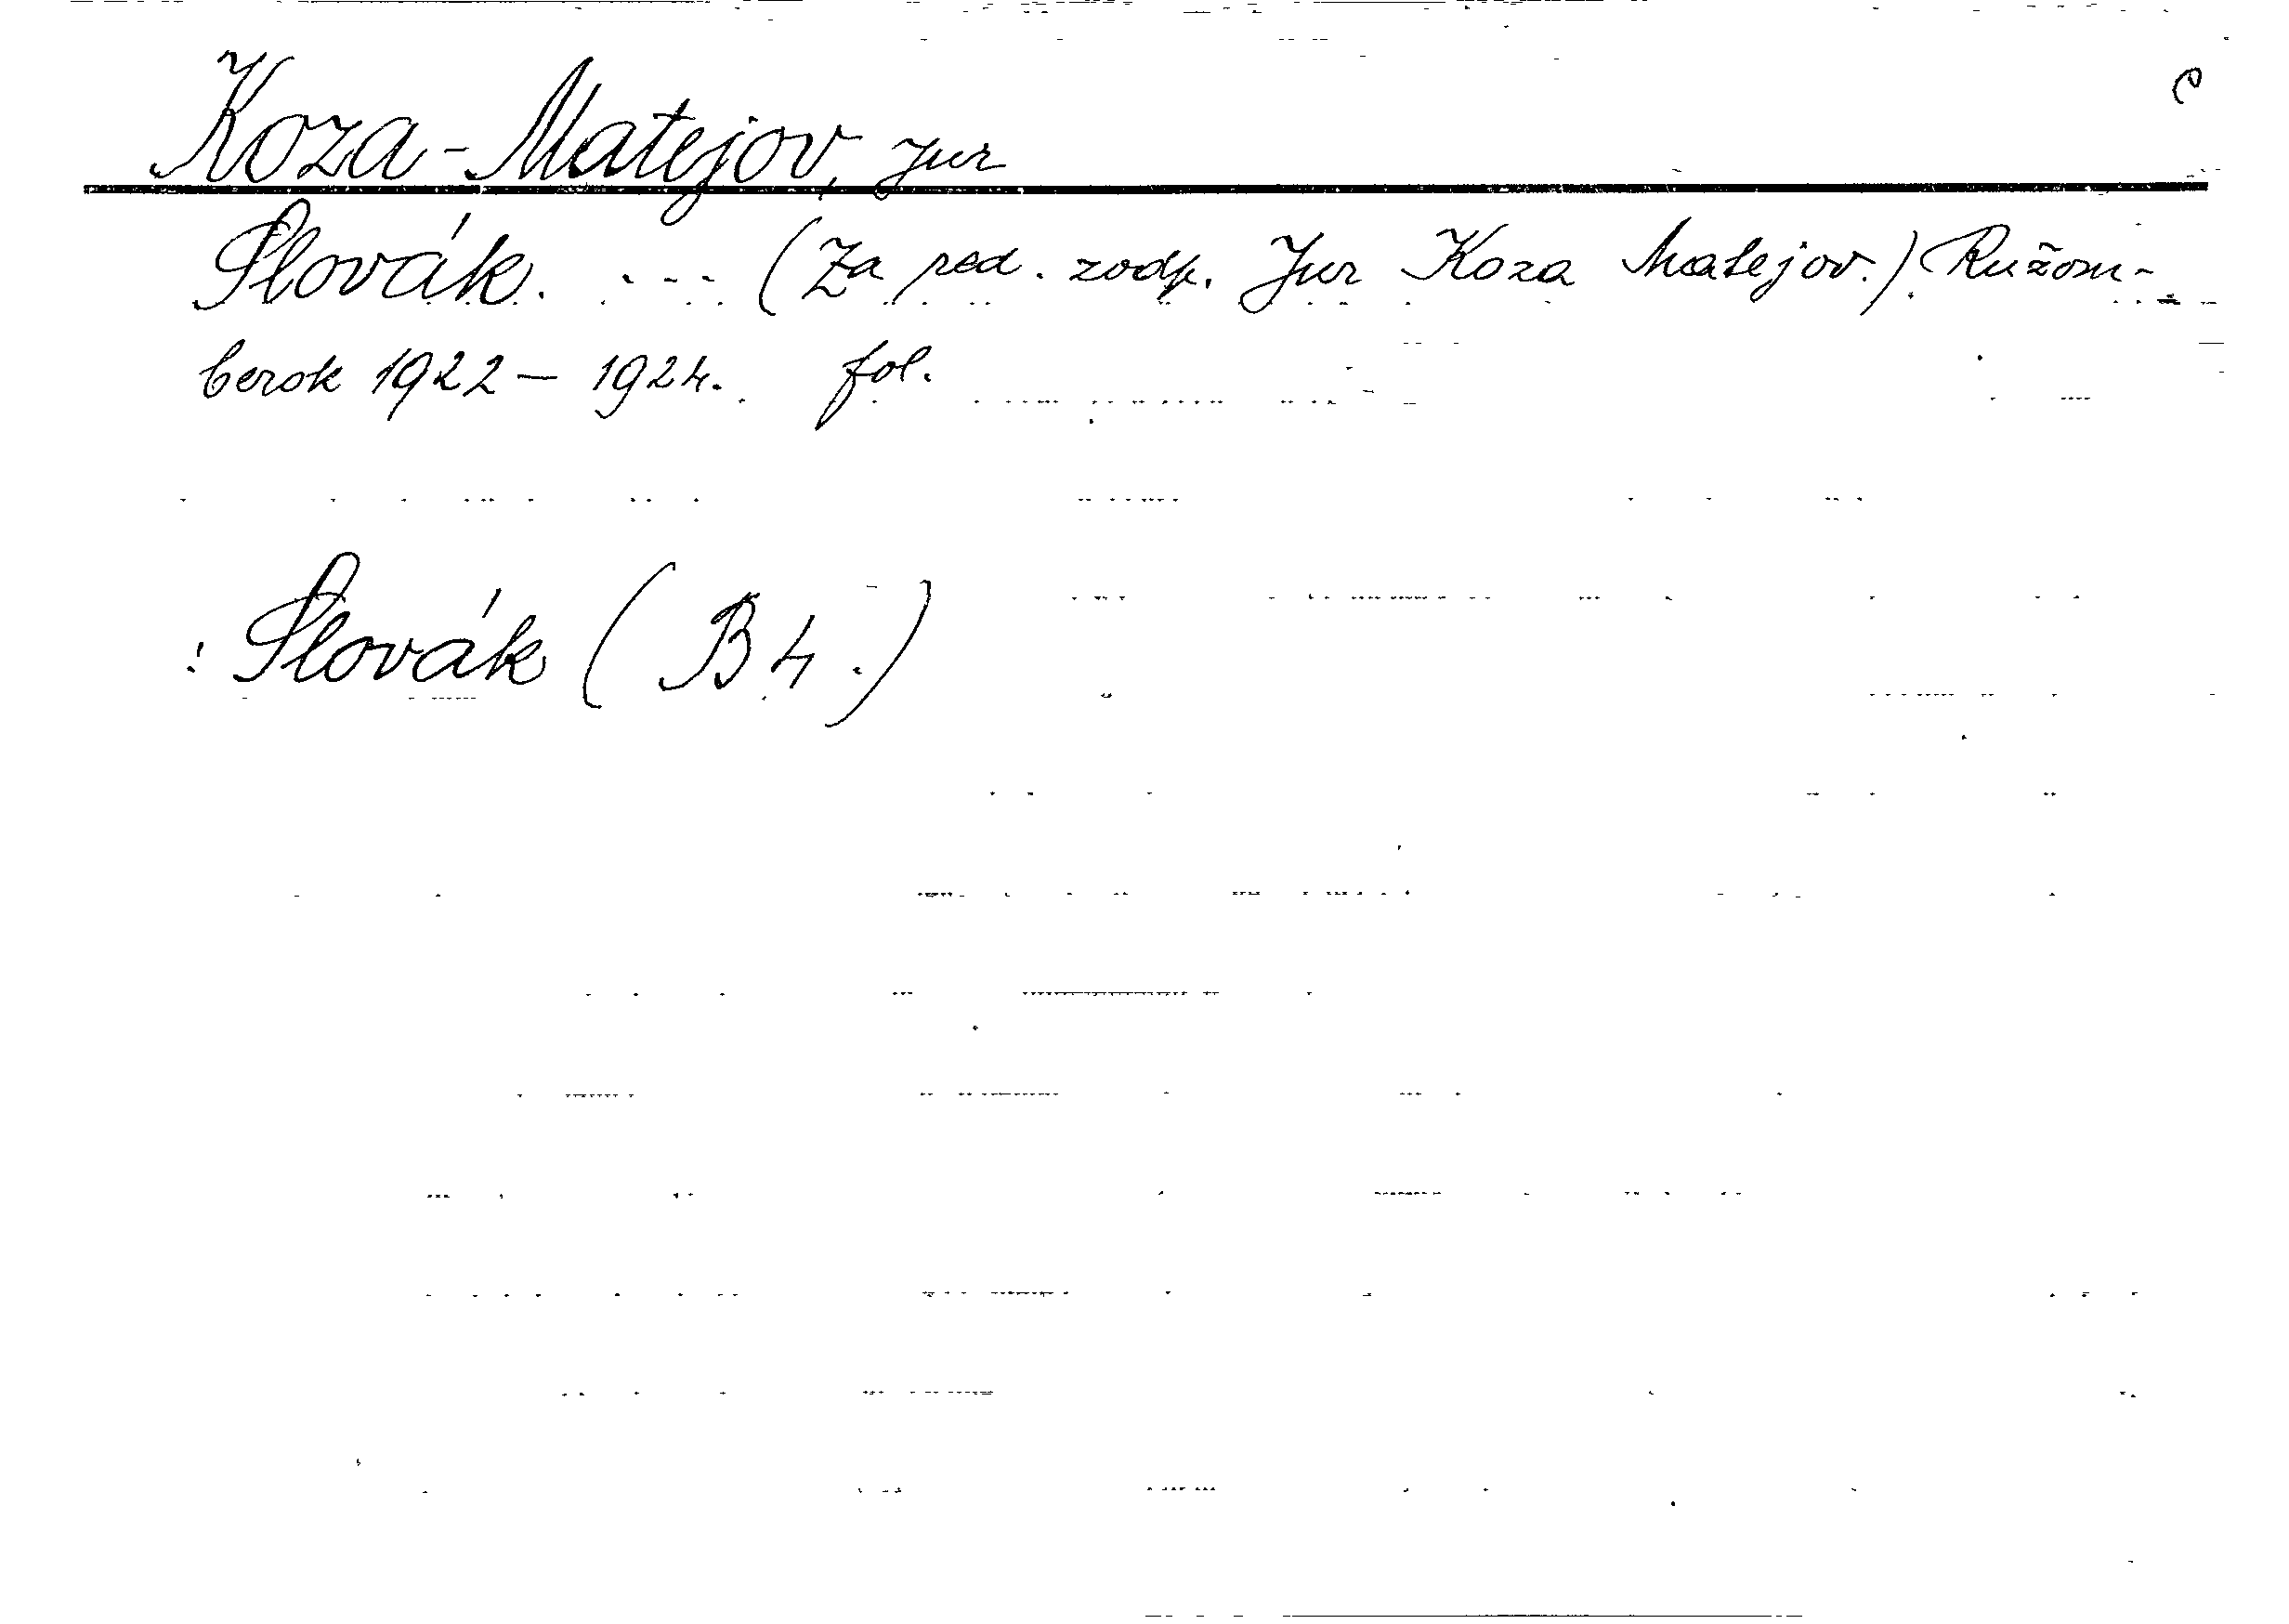 Koza-Matejov, Jur
Slovák. ... (Za red. zodp. Jur Koza Matejov.) Ružom-
berok 1922 – 1924. fol.
: Slovák (B 4.)